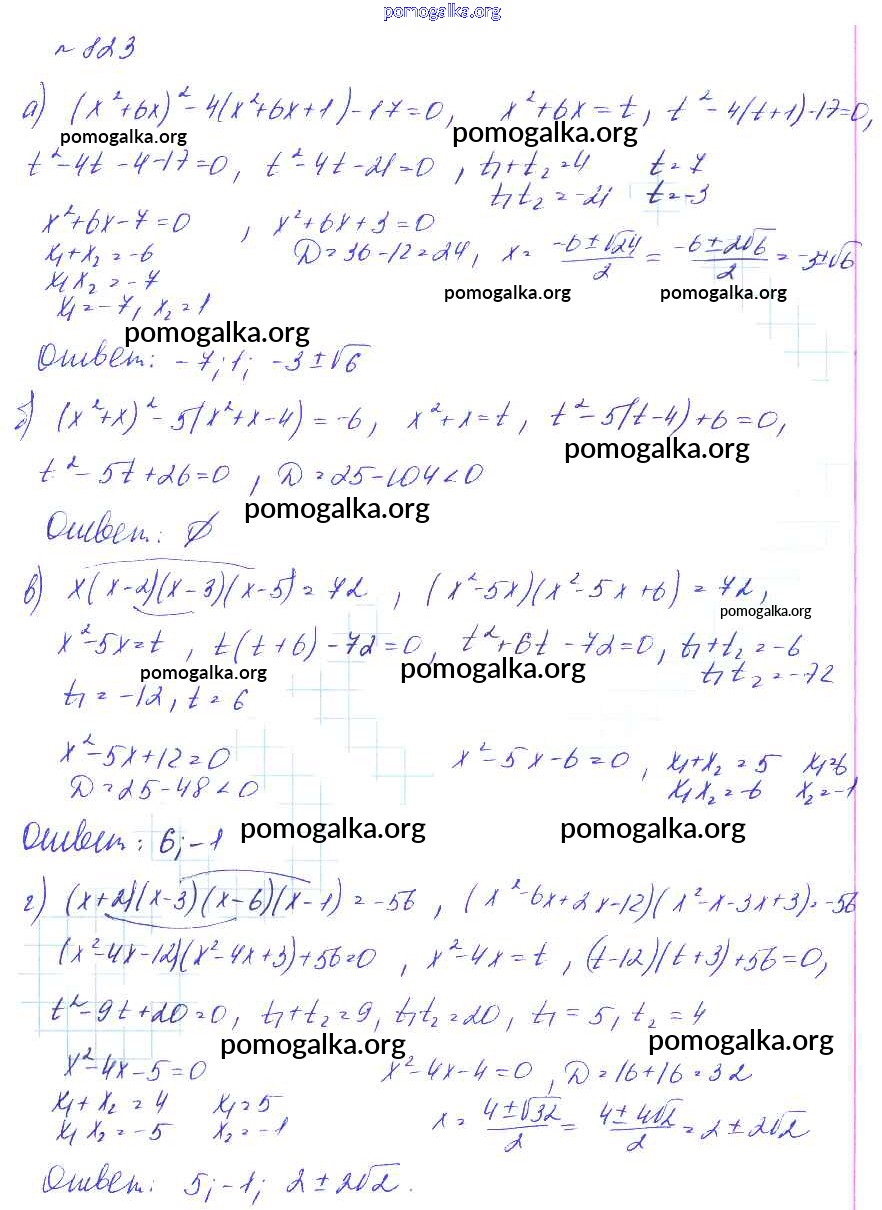 pomogalka.org
№ 823
а) (x²+6x)²-4(x²+6x+1)-17=0, x²+6x=t, t²-4(t+1)-17=0,
pomogalka.org pomogalka.org
t²-4t-4-17=0, t²-4t-21=0, t₁+t₂=4 t=7
t₁t₂=-21 t=-3
x²+6x-7=0, x²+6x+3=0
x₁+x₂=-6 D=36-12=24, x=(-6±√24)/2=(-6±2√6)/2=-3±√6
x₁x₂=-7
pomogalka.org pomogalka.org
x₁=-7, x₂=1
pomogalka.org
Ответ: -7; 1; -3±√6
б) (x²+x)²-5(x²+x-4)=-6, x²+x=t, t²-5(t-4)+6=0,
pomogalka.org
t²-5t+26=0, D=25-104<0
pomogalka.org
Ответ: ∅
в) x(x-2)(x-3)(x-5)=72, (x²-5x)(x²-5x+6)=72,
pomogalka.org
x²-5x=t, t(t+6)-72=0, t²+6t-72=0, t₁+t₂=-6
pomogalka.org pomogalka.org t₁t₂=-72
t₁=-12, t=6
x²-5x+12=0 x²-5x-6=0, x₁+x₂=5 x₁=6
D=25-48<0 x₁x₂=-6 x₂=-1
pomogalka.org pomogalka.org
Ответ: 6; -1
г) (x+2)(x-3)(x-6)(x-1)=-56, (x²-6x+2x-12)(x²-x-3x+3)=-56
(x²-4x-12)(x²-4x+3)+56=0, x²-4x=t, (t-12)(t+3)+56=0,
t²-9t+20=0, t₁+t₂=9, t₁t₂=20, t₁=5, t₂=4
pomogalka.org pomogalka.org
x²-4x-5=0 x²-4x-4=0, D=16+16=32
x₁+x₂=4 x₁=5 x=(4±√32)/2=(4±4√2)/2=2±2√2
x₁x₂=-5 x₂=-1
Ответ: 5; -1; 2±2√2.